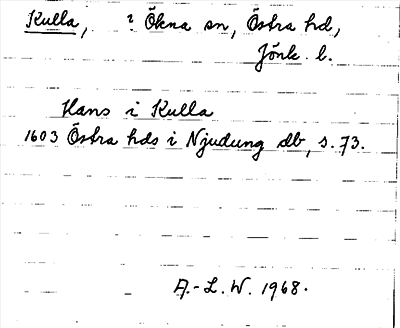 Kulla, i Ökna sn, Östra hd,
Jönk. l.
Hans i Kulla
1603 Östra hds i Njudung db, s. 73.
A.-L. W. 1968.